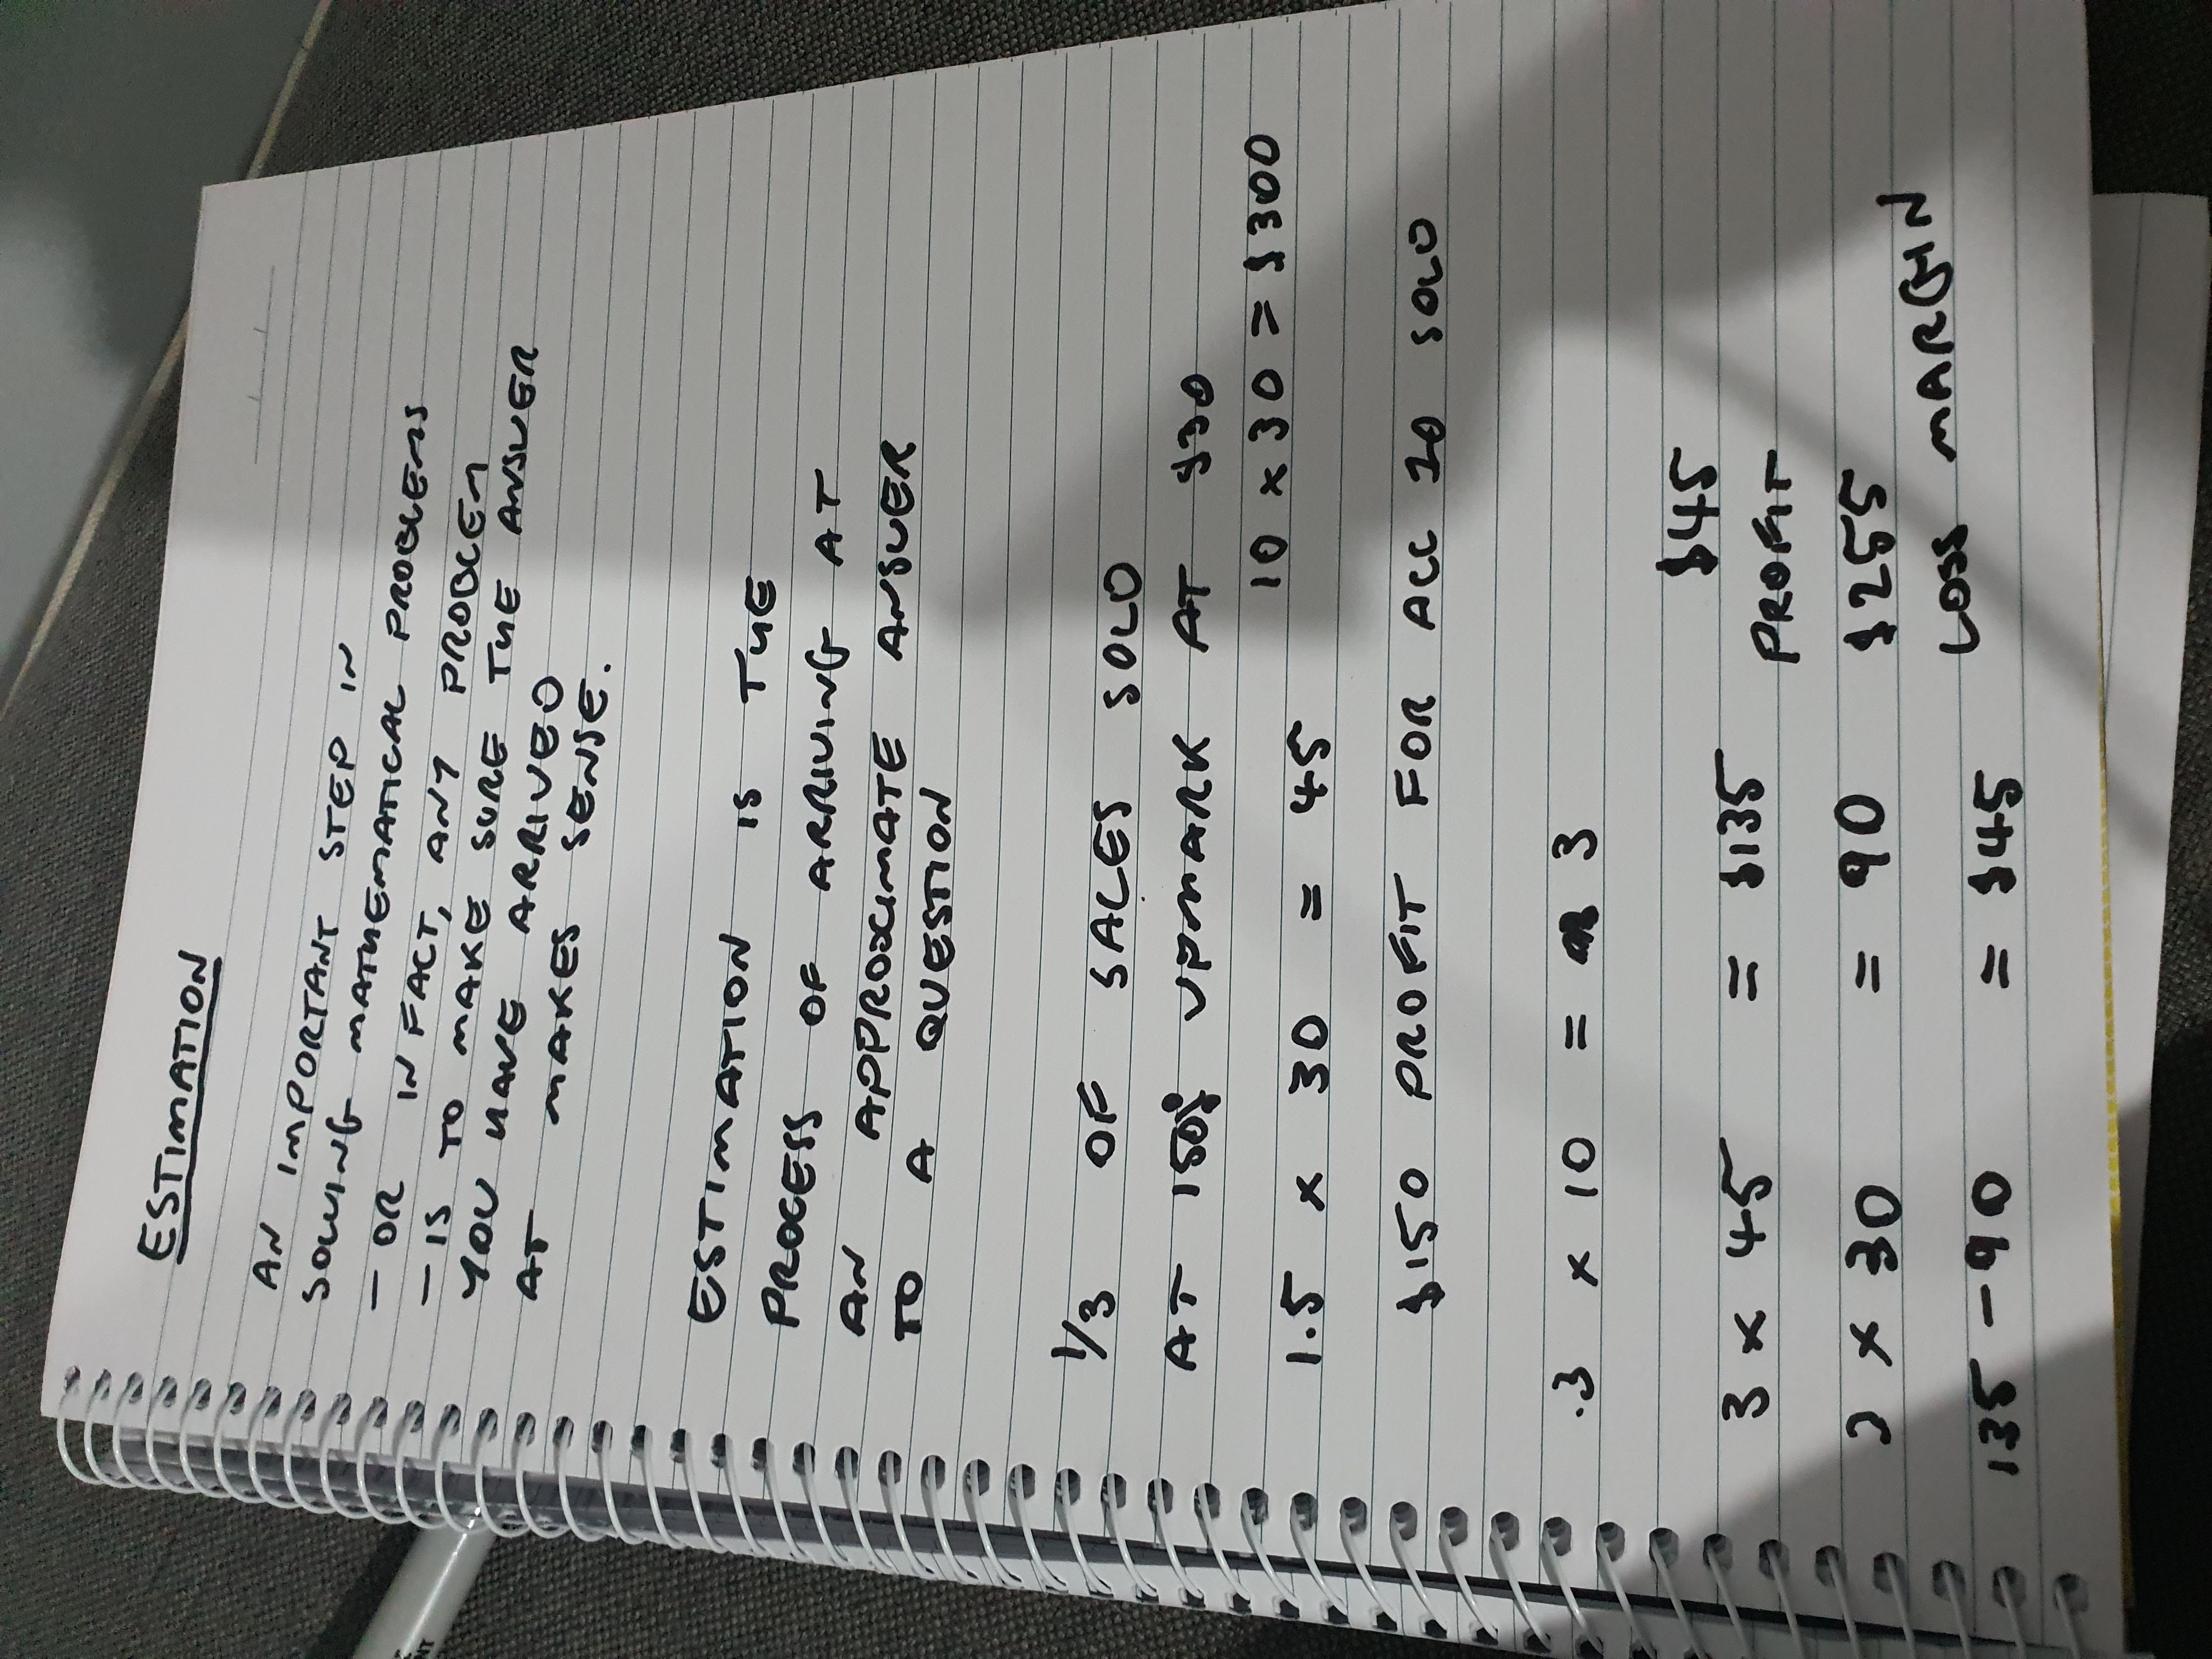 ESTIMATION
AN IMPORTANT STEP IN
SOLVING MATHEMATICAL PROBLEMS
- OR IN FACT, ANY PROBLEM
- IS TO MAKE SURE THE ANSWER
YOU HAVE ARRIVED
AT MAKES SENSE.
ESTIMATION IS THE
PROCESS OF ARRIVING AT
AN APPROXIMATE ANSWER
TO A QUESTION
1/3 OF SALES SOLD
AT 150% UPMARK AT $30
10 x 30 = $300
1.5 x 30 = 45
$150 PROFIT FOR ALL 10 SOLD
.3 x 10 = 3
$45
3 x 45 = $135
PROFIT
3 x 30 = 90 $255
LOSS MARGIN
135 - 90 = $45